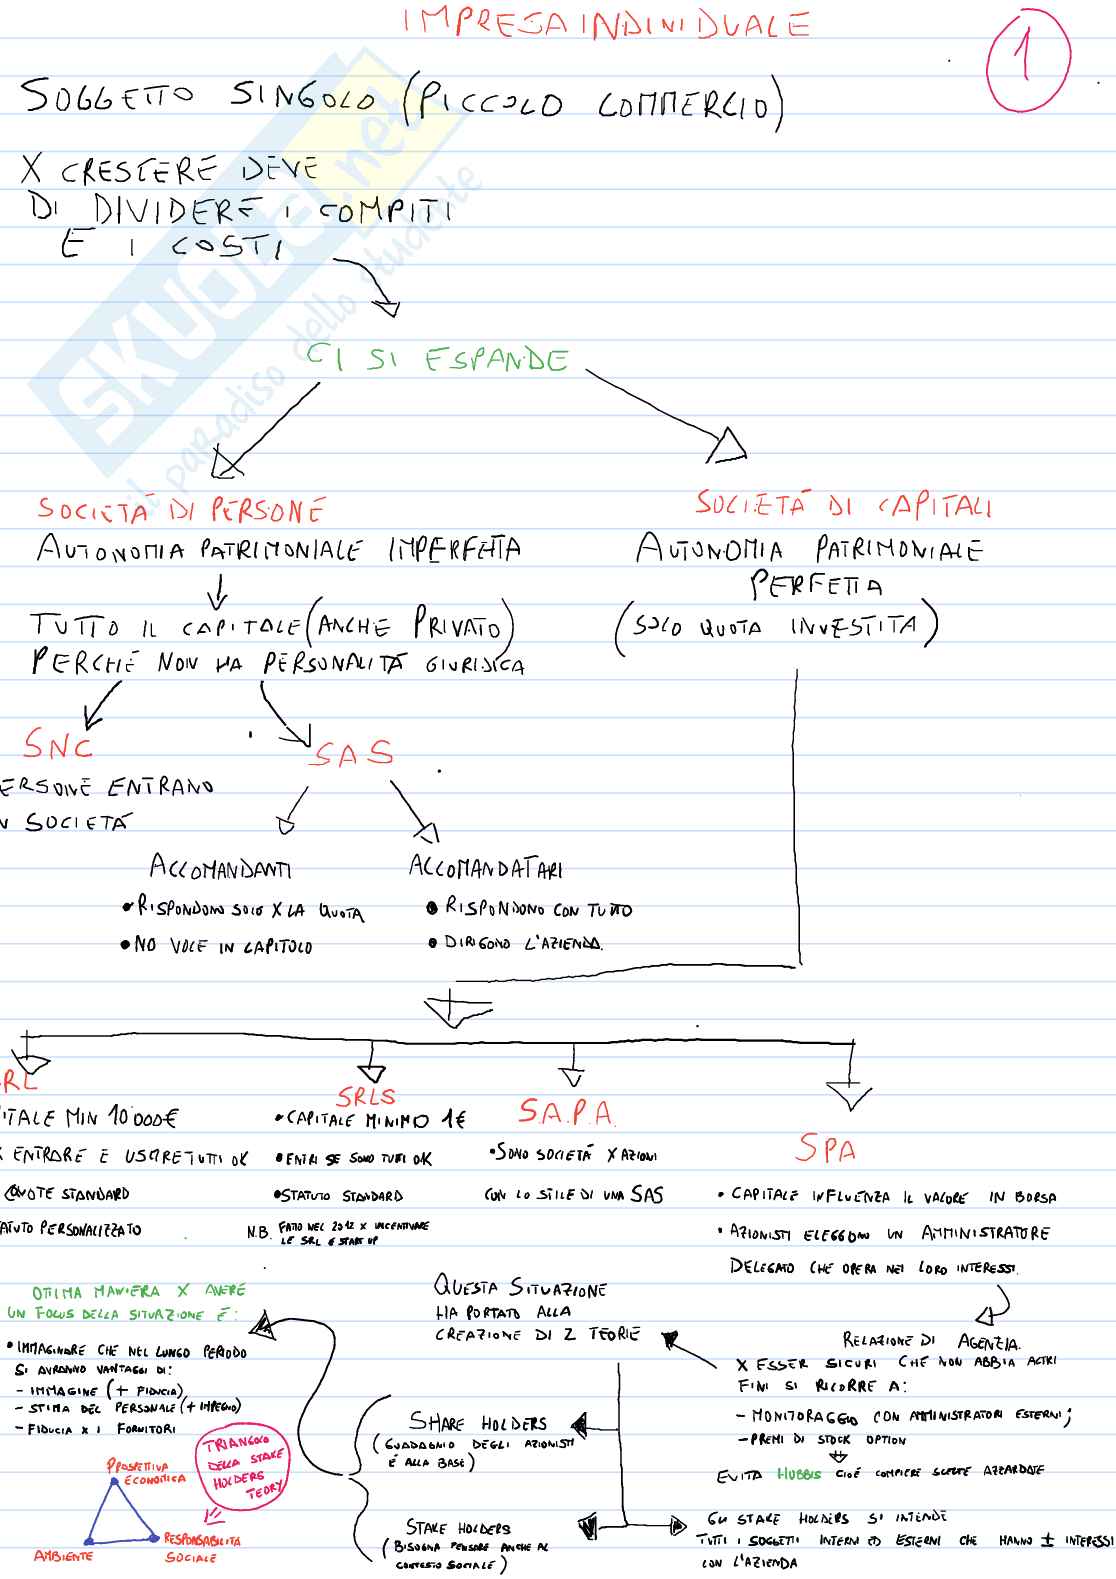 IMPRESA INDIVIDUALE
1
SOGGETTO SINGOLO (PICCOLO COMMERCIO)
X CRESCERE DEVE
DI DIVIDERE I COMPITI
E I COSTI
SKUOLA.net
il paradiso dello studente
CI SI ESPANDE
SOCIETÀ DI PERSONE
AUTONOMIA PATRIMONIALE IMPERFETTA
TUTTO IL CAPITALE (ANCHE PRIVATO)
PERCHÉ NON HA PERSONALITÀ GIURIDICA
SOCIETÀ DI CAPITALI
AUTONOMIA PATRIMONIALE
PERFETTA
(SOLO QUOTA INVESTITA)
SNC
ERSONE ENTRANO
N SOCIETÀ
SAS
ACCOMANDANTI
• RISPONDONO SOLO X LA QUOTA
• NO VOCE IN CAPITOLO
ACCOMANDATARI
• RISPONDONO CON TUTTO
• DIRIGONO L'AZIENDA.
RL
ITALE MIN 10000€
ENTRARE E USCIRE TUTTI OK
QUOTE STANDARD
ATUTO PERSONALIZZATO
SRLS
• CAPITALE MINIMO 1€
• ENTRI SE SONO TUTTI OK
• STATUTO STANDARD
N.B. FATTO NEL 2012 X INCENTIVARE
LE SRL E START UP
S.A.P.A.
• SONO SOCIETÀ X AZIONI
CON LO STILE DI UNA SAS
SPA
• CAPITALE INFLUENZA IL VALORE IN BORSA
• AZIONISTI ELEGGONO UN AMMINISTRATORE
DELEGATO CHE OPERA NEI LORO INTERESSI.
RELAZIONE DI AGENZIA.
X ESSER SICURI CHE NON ABBIA ALTRI
FINI SI RICORRE A:
- MONITORAGGIO CON AMMINISTRATORI ESTERNI;
- PREMI DI STOCK OPTION
EVITA HUBBIS CIOÉ COMPIERE SCELTE AZZARDATE
QUESTA SITUAZIONE
HA PORTATO ALLA
CREAZIONE DI 2 TEORIE
SHARE HOLDERS
(GUADAGNIO DEGLI AZIONISTI
É ALLA BASE)
STAKE HOLDERS
(BISOGNA PENSARE ANCHE AL
CONTESTO SOCIALE)
GLI STAKE HOLDERS SI INTENDE
TUTTI I SOGGETTI INTERNI ED ESTERNI CHE HANNO ± INTERESSI
CON L'AZIENDA
OTTIMA MANIERA X AVERE
UN FOCUS DELLA SITUAZIONE É:
• IMMAGINARE CHE NEL LUNGO PERIODO
SI AVRANNO VANTAGGI DI:
- IMMAGINE (+ FIDUCIA)
- STIMA DEL PERSONALE (+ IMPEGNO)
- FIDUCIA X I FORNITORI
TRIANGOLO
DELLA STAKE
HOLDERS
TEORY
PROSPETTIVA
ECONOMICA
AMBIENTE
RESPONSABILITÀ
SOCIALE